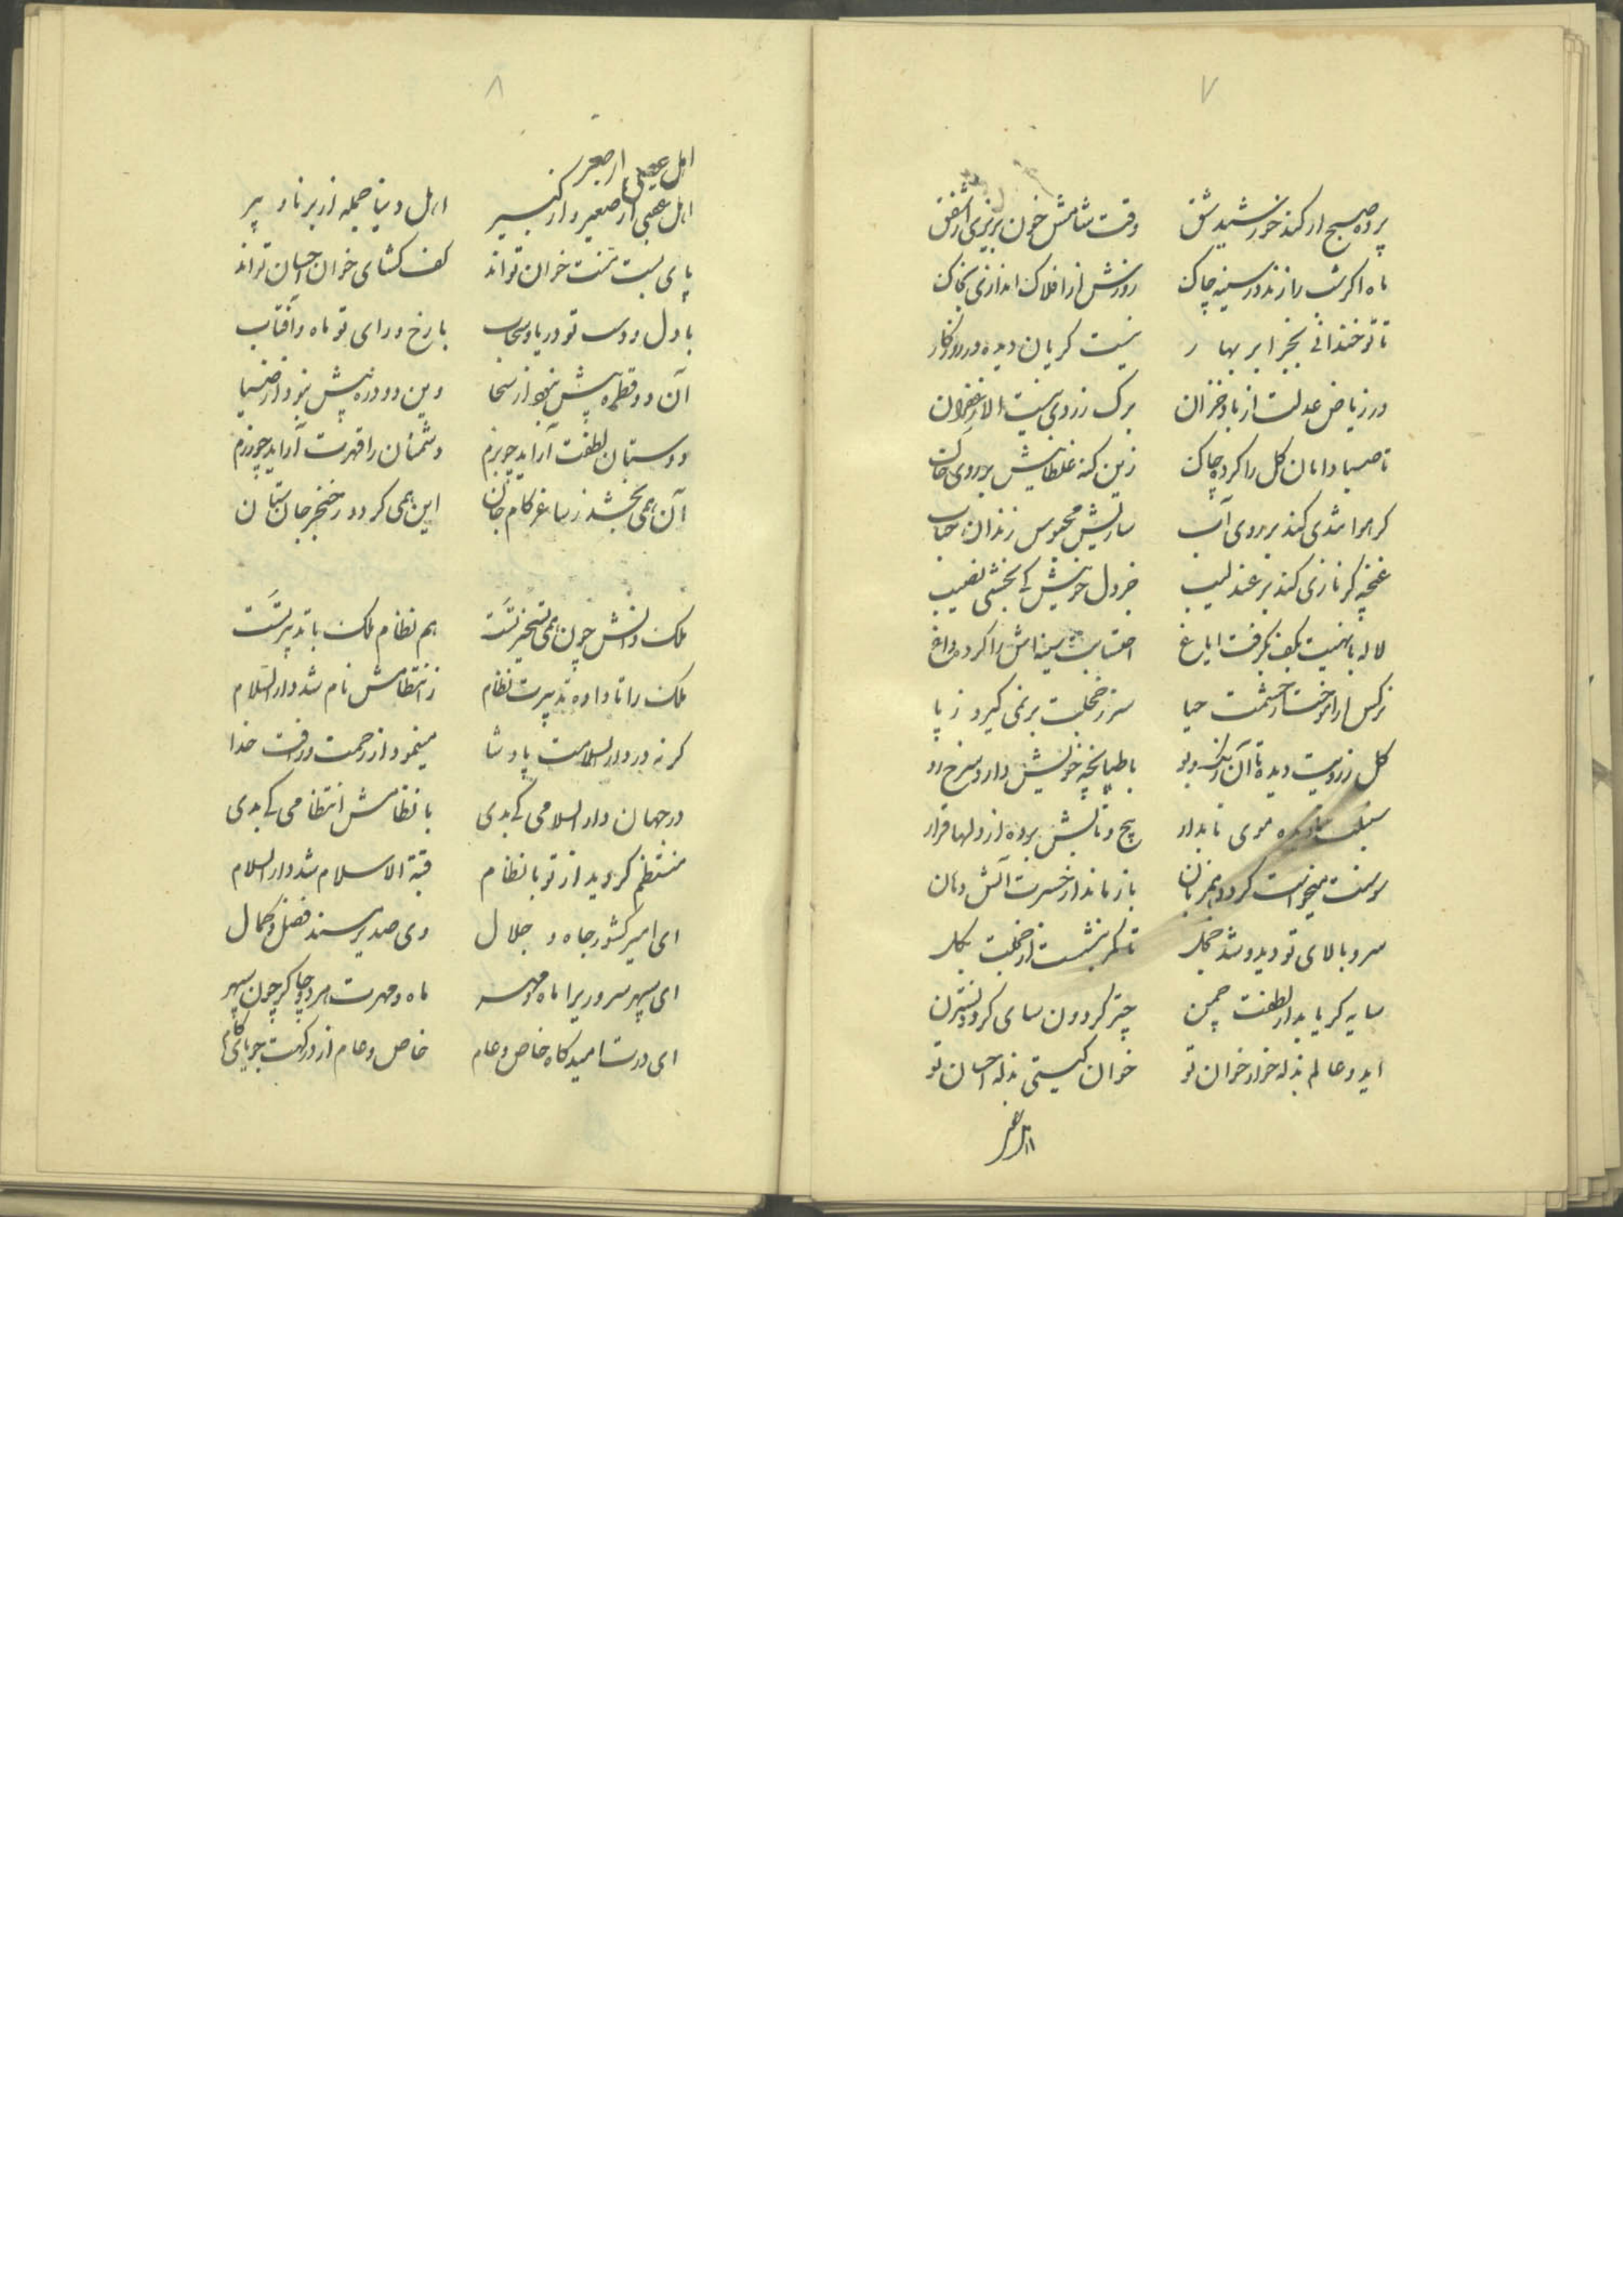 ۷
پرده صبح ار کند خورشید شق وقت شامش خون بریزی از شفق
ماه اگر شب را زند در سینه چاک روزش از افلاک اندازی بخاک
تا تو خندانی بجز ابر بهار نیست گریان دیده در روزگار
در ریاض عدلت از باد خزان برگ زردی نیست الا زعفران
تا صبا دامان گل را کرده چاک زین گنه غلطانیش بر روی خاک
گر هوا تندی کند بر روی آب سازیش محبوس زندان حباب
غنچه گر نازی کند بر عندلیب جز دل خونیش کی بخشی نصیب
لاله با نهیت بکف بگرفت ایاغ احتسابت سینه اش را کرده داغ
نرگس ار آموخت از چشمت حیا سر ز خجلت بر نمی گیرد ز پا
گل ز رویت دیده تا آن رنگ و بو با طپانچه خویش دارد سرخ رو
سنبلت موی تابدار پیچ و تابش برده از دلها قرار
سوسنت میخواست گردد همزبان باز ماند از حسرت آتش دهان
سرو بالای تو دید و شد خجل تا کمر بنشست از خجلت بگل
سایه گر یابد از لطفت چمن چتر گردون سای گردد نسترن
ای دو عالم بذله خوار خوان تو خوان گیتی بذله احسان تو
اهل عقبی
۸
اهل عقبی از صغیر
اهل عقبی از صغیر و از کبیر اهل دنیا جمله از برنا و پیر
پای بست منت خوان تواند کف گشای خوان احسان تواند
با دل و دست تو دریا و سحاب با رخ و رای تو ماه و آفتاب
آن دو قطره پیش نبود از سخا وین دو ذره پیش نبود از ضیا
دوستان لطفت آراید چو بزم دشمنان را قهرت آراید چو رزم
آن همی بخشد ز ساغر کام جان این همی گردد ز خنجر جان ستان
ملک دانش چون همی تسخیر تست هم نظام ملک با تدبیر تست
ملک را تا داده تدبیرت نظام ز انتظامش نام شد دار السلام
گر نه در دار السلامت پادشا مینمود از رحمت و رافت خدا
در جهان دار السلامی کی بدی با نظامش انتظامی کی بدی
منتظم گردید از تو با نظام قبة الاسلام شد دار السلام
ای امیر کشور جاه و جلال وی صدیر مسند فضل و کمال
ای سپهر سروری را ماه و مهر ماه و مهرت هر دو چاکر چون سپهر
ای درت امیدگاه خاص و عام خاص و عام از درگهت جویای کام